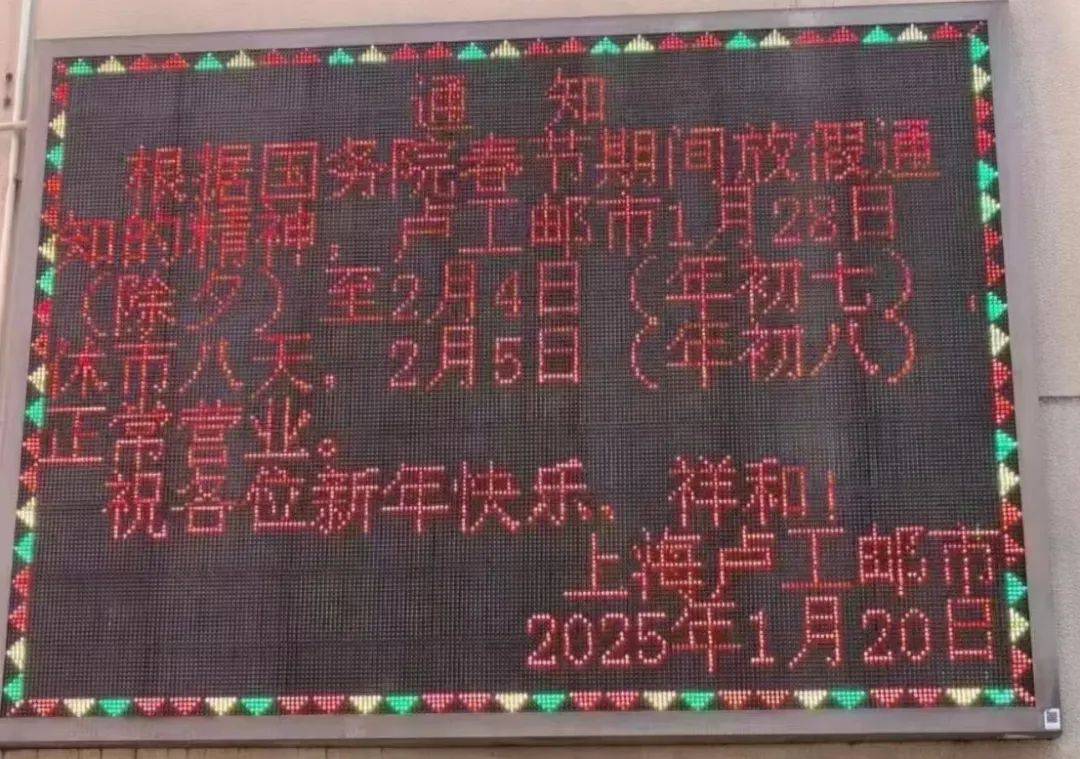 通 知
根据国务院春节期间放假通
知的精神，卢工邮市1月28日
（除夕）至2月4日（年初七），
休市八天，2月5日（年初八）
正常营业。
祝各位新年快乐、祥和！
上海卢工邮市
2025年1月20日